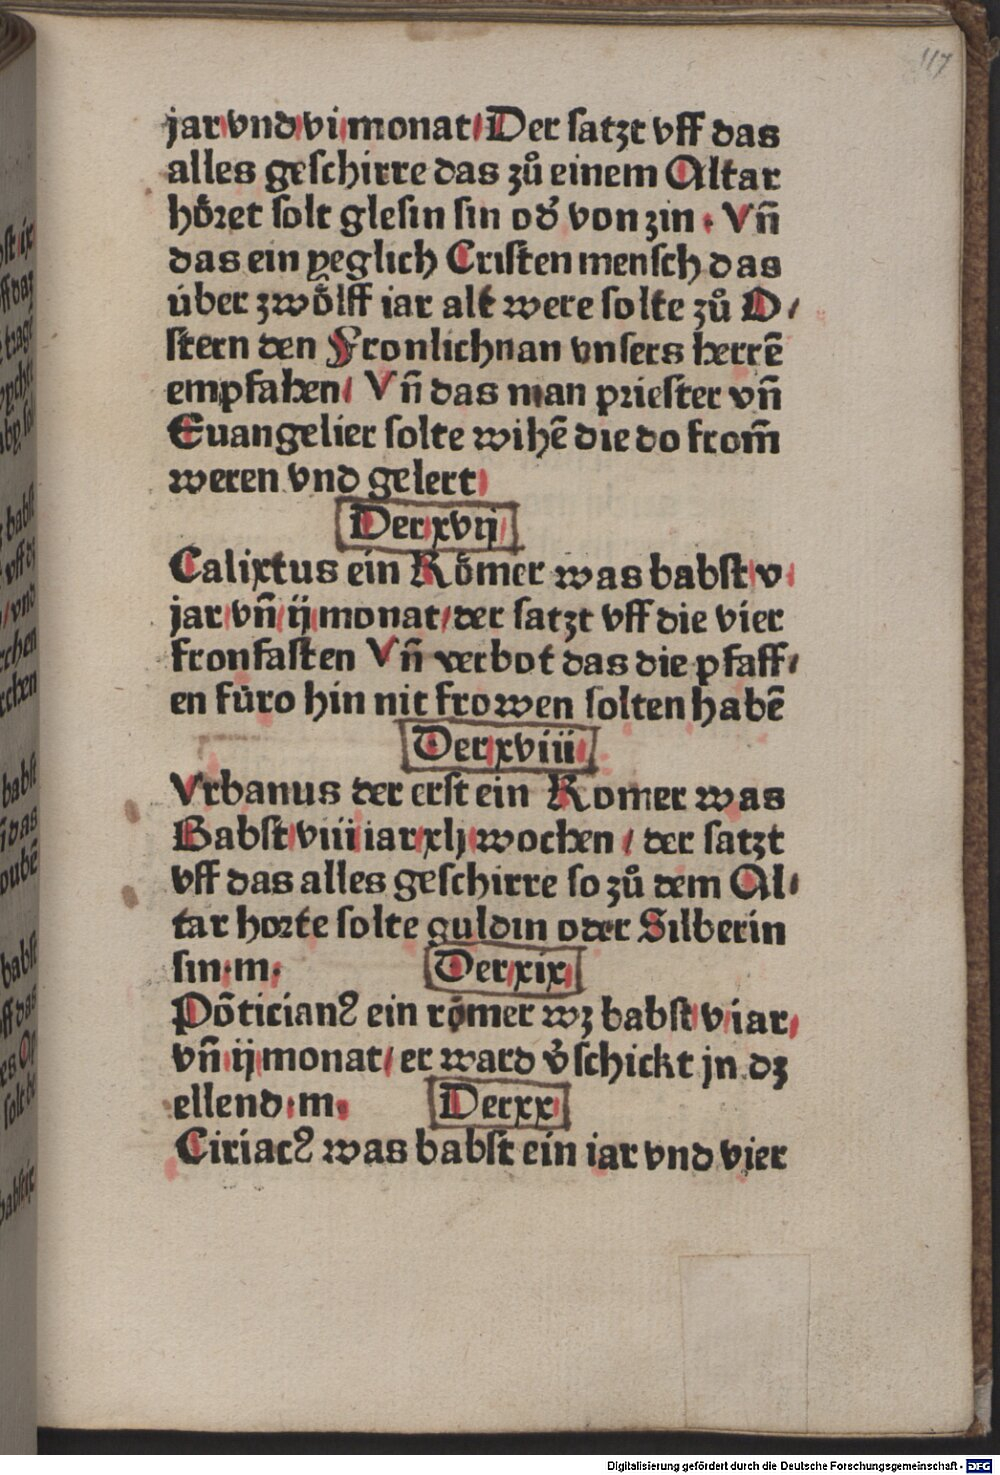 117
jar vnd vi monat / Der satzt vff das
alles geschirre das zů einem Altar
hőret solt glesin sin oď von zin · Vn̄
das ein yeglich Cristen mensch das
über zwölff iar alt were solte zů O/
stern den Fronlichnan vnsers herrē
empfahen / Vn̄ das man priester vn̄
Euangelier solte wihē die do from̄
weren vnd gelert /
Der xvij
Calixtus ein Römer was babst v
jar vn̄ ij monat / der satzt vff die vier
fronfasten Vn̄ verbot das die pfaff/
en füro hin nit frowen solten habē
Der xviii
Vrbanus der erst ein Romer was
Babst viii iar xlj wochen / der satzt
vff das alles geschirre so zů dem Al/
tar horte solte guldin oder Silberin
sin · m ·
Der xix
Pōticianꝰ ein römer wz babst v iar /
vn̄ ij monat / er ward v̓schickt jn dz
ellend · m ·
Der xx
Ciriacꝰ was babst ein iar vnd vier
Digitalisierung gefördert durch die Deutsche Forschungsgemeinschaft - DFG